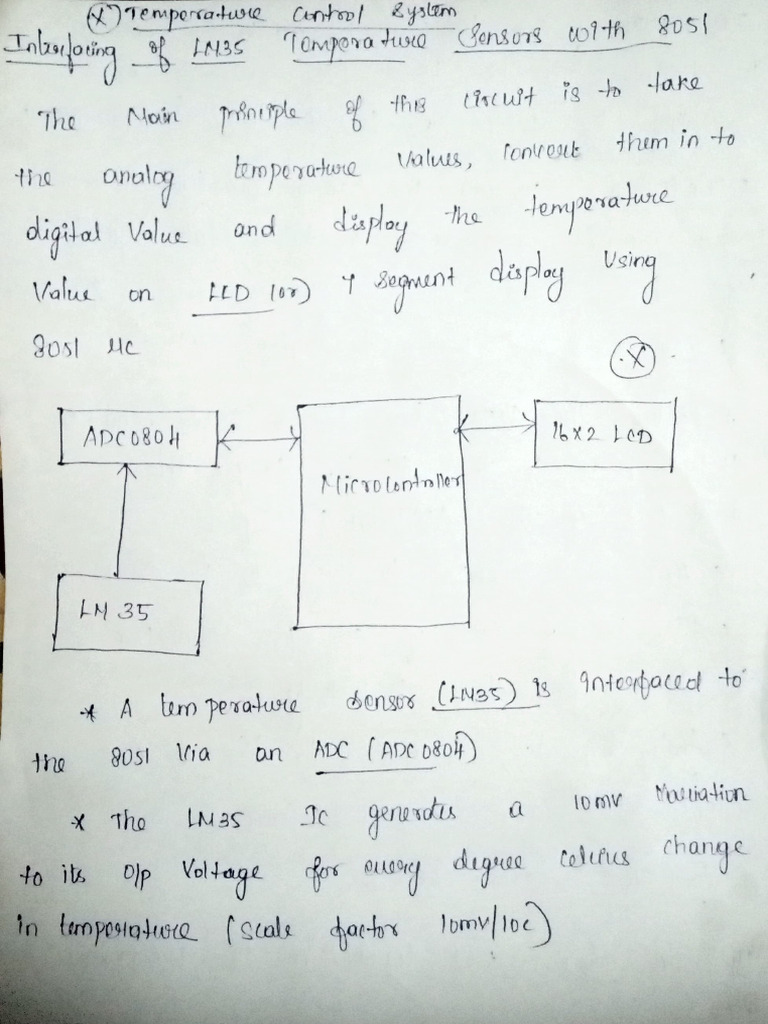 (X) Temperature Control System
Interfacing of LM35 Temperature Sensors with 8051
The Main principle of this circuit is to take
the analog temperature values, convert them in to
digital Value and display the temperature
Value on LCD (or) 7 segment display Using
8051 µc
X
ADC0804
Microcontroller
16x2 LCD
LM 35
* A temperature sensor (LM35) is interfaced to
the 8051 Via an ADC (ADC 0804)
* The LM35 Ic generates a 10mv Variation
to its O/p Voltage for every degree celcius change
in temperature (scale factor 10mv/10c)